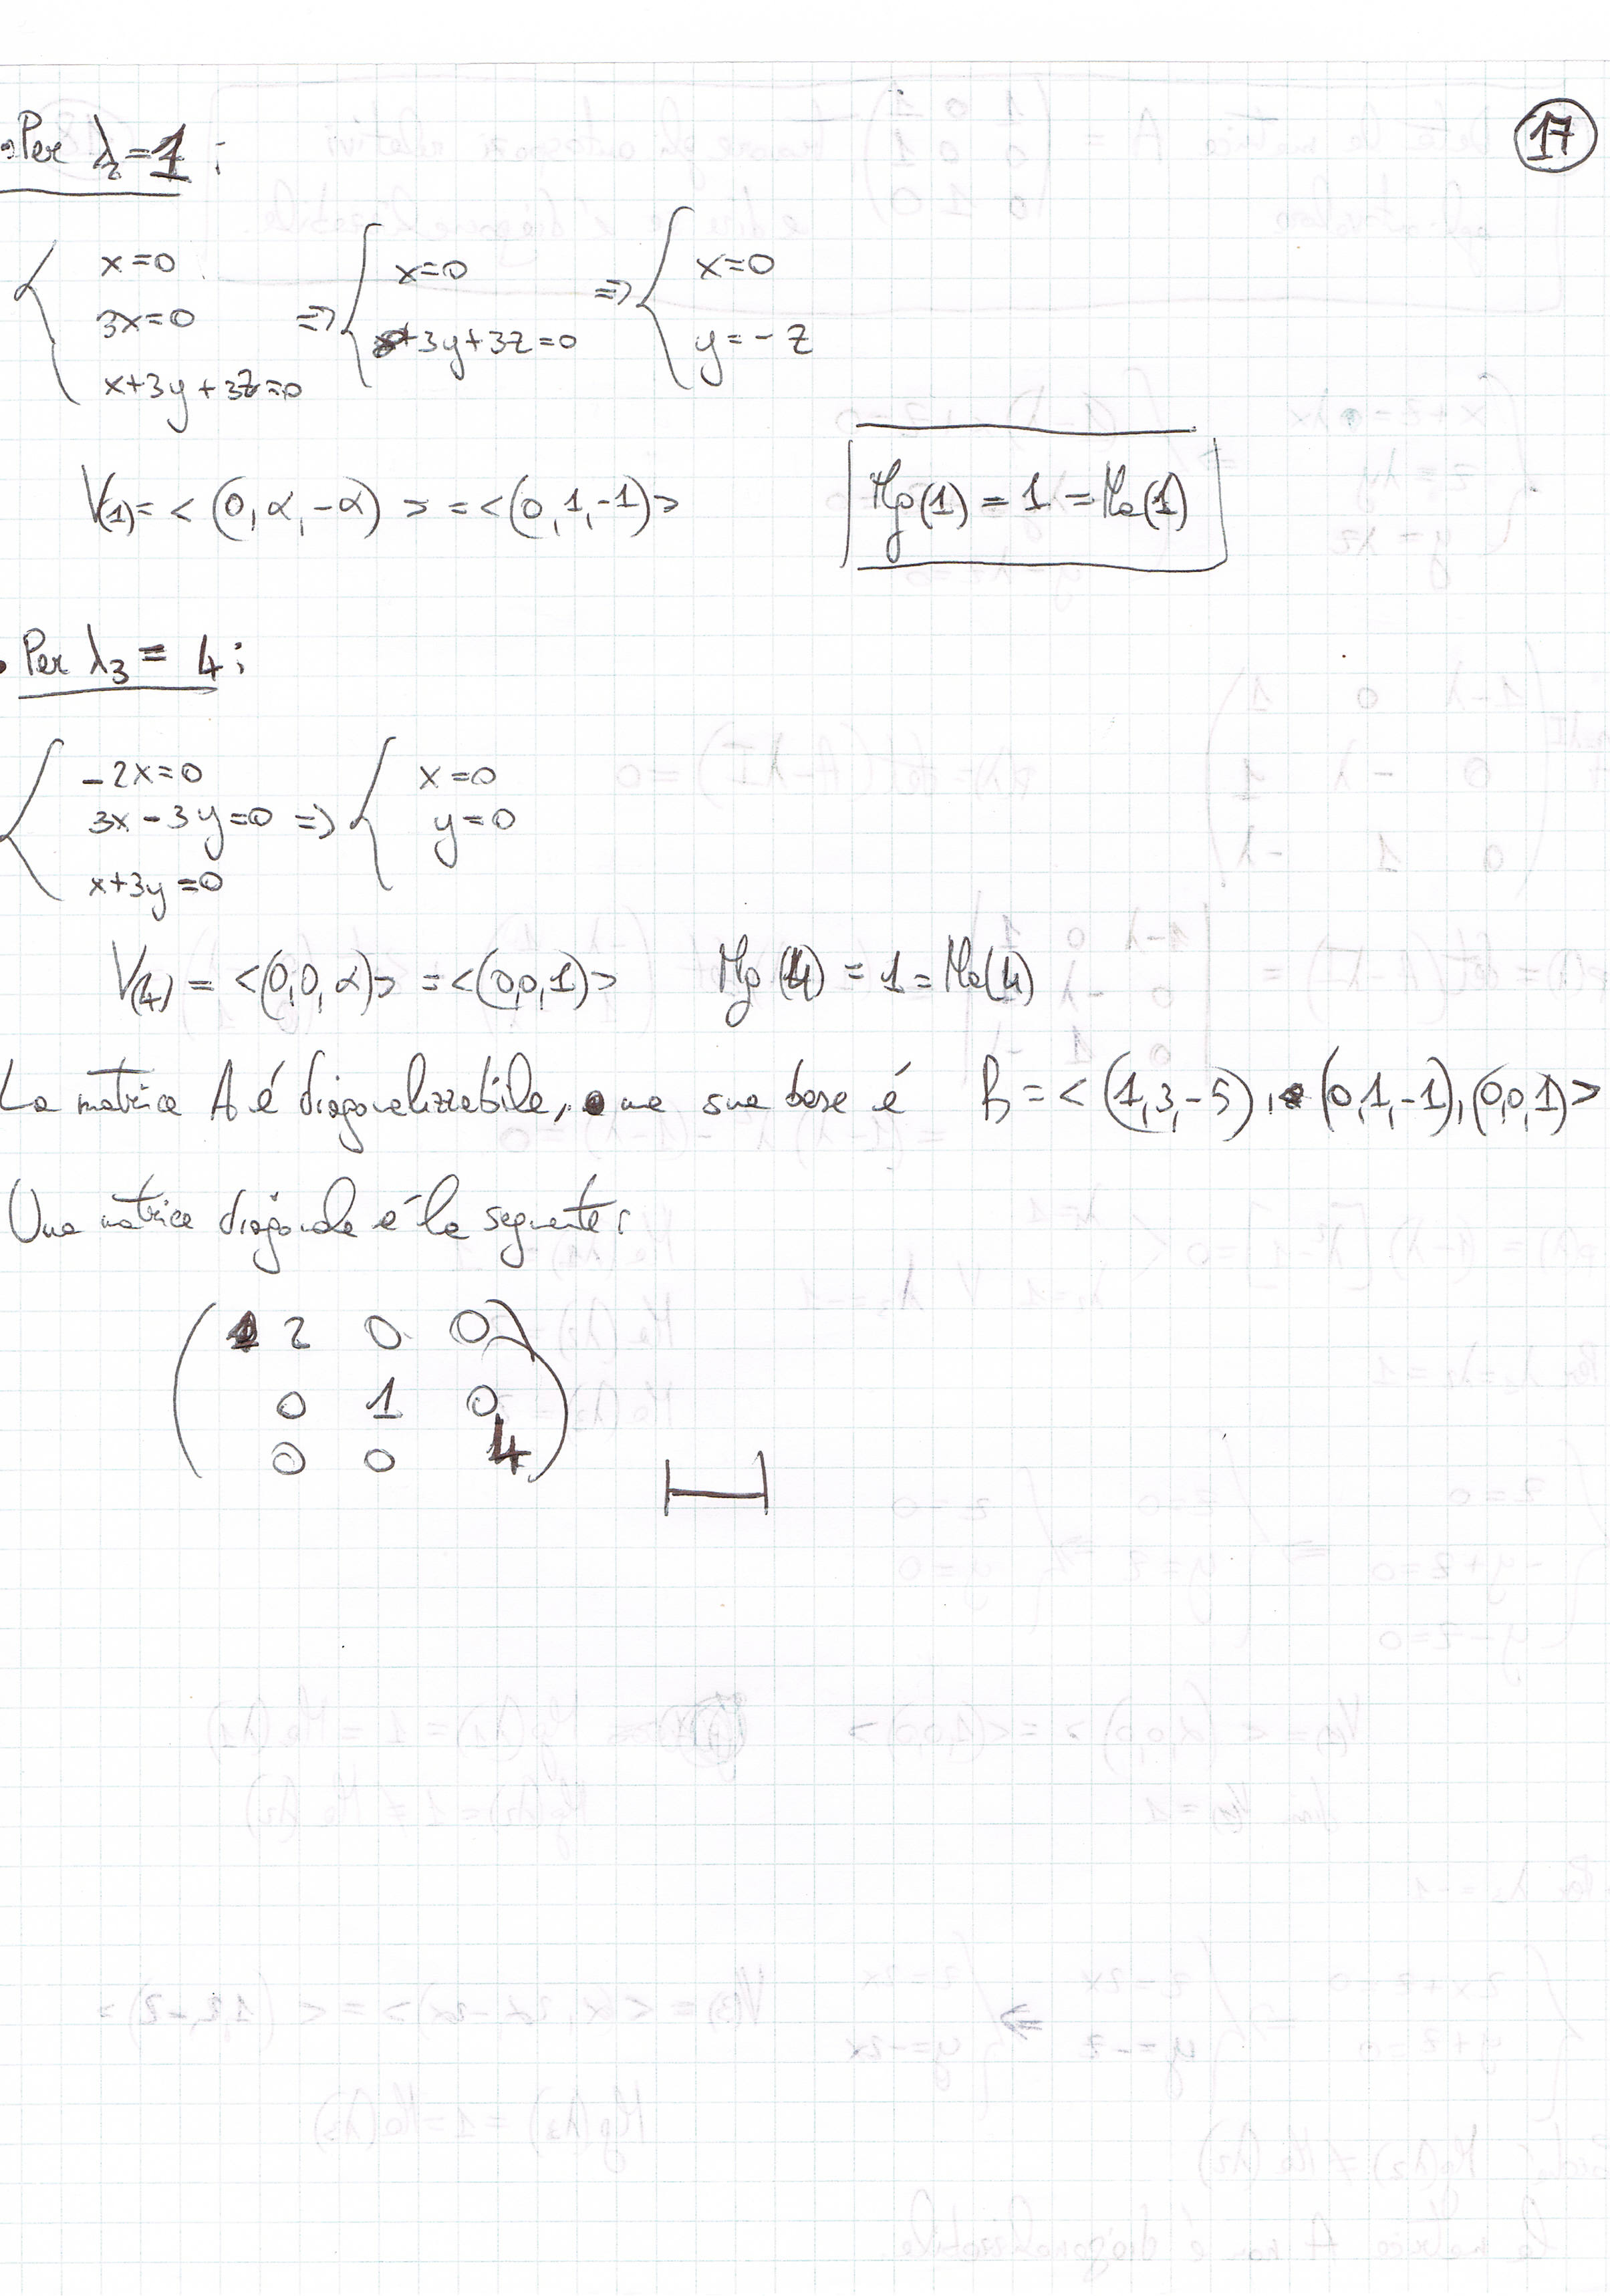 17
• Per λ₂=1:
{ x=0 ; 3x=0 ; x+3y+3z=0 ⇒ { x=0 ; 3y+3z=0 ⇒ { x=0 ; y=-z
V(1)= <(0,α,-α)> = <(0,1,-1)>
Mg(1) = 1 = Ma(1)
• Per λ₃ = 4:
{ -2x=0 ; 3x-3y=0 ; x+3y=0 ⇒ { x=0 ; y=0
V(4) = <(0,0,α)> = <(0,0,1)> Mg(4) = 1 = Ma(4)
La matrice A é diagonalizzabile, una sua base é B = <(1,3,-5), (0,1,-1), (0,0,1)>
Una matrice diagonale é la seguente:
2 0 0
0 1 0
0 0 4